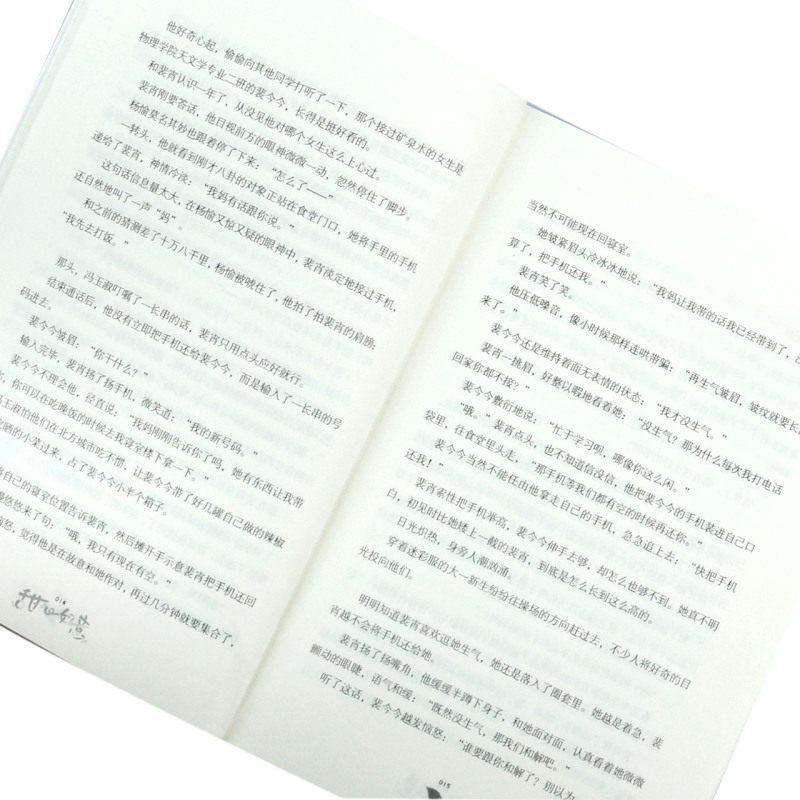 他好奇心起，偷偷向其他同学打听了一下，那个接过矿泉水的女生是
物理学院天文学专业二班的裴今今，长得是挺好看的。
和裴宵认识一年了，从没见他对哪个女生这么上心过。
裴宵刚要答话，他目视前方的眼神微微一动，忽然停住了脚步。
杨愉莫名其妙也跟着停了下来：“怎么了——”
一转头，他就看到刚才八卦的对象正站在食堂门口，她将手里的手机
递给了裴宵，神情冷淡：“我妈有话跟你说。”
这句话信息量太大，在杨愉又惊又疑的眼神中，裴宵淡定地接过手机，
还自然地叫了一声“妈”。
和之前的猜测差了十万八千里，杨愉被唬住了，他拍了拍裴宵的肩膀：
“我先去打饭。”
那头，冯玉淑叮嘱了一长串的话，裴宵只用点头应好就行。
结束通话后，他没有立即把手机还给裴今今，而是输入了一长串的号
码进去。
裴今今皱眉：“你干什么？”
输入完毕，裴宵扬了扬手机，微笑道：“我的新号码。”
裴今今不理会他，径直说：“我妈刚刚告诉你了吗，她有东西让我带
，你可以在吃晚饭的时候去我寝室楼下拿一下。”
玉淑怕他们在北方城市吃不惯，让裴今今带了好几罐自己做的辣椒
晒的小菜过来，占了裴今今小半个箱子。
自己的寝室位置告诉裴宵，然后摊开手示意裴宵把手机还回
慢悠悠来了句：“哦，我只有现在有空。”
恼怒，觉得他是在故意和她作对，再过几分钟就要集合了，
014
当然不可能现在回寝室。
她皱紧眉头冷冰冰地说：“我妈让我带的话我已经带到了，
算了，把手机还我。”
裴宵笑了笑。
他压低嗓音，像小时候那样连哄带骗：“再生气皱眉，皱纹就要长
来了。”
裴今今还是维持着面无表情的状态：“我才没生气。”
裴宵一挑眉，好整以暇地看着她：“没生气？那为什么每次我打电话
回家你都不接？”
裴今今敷衍地说：“忙于学习呗，哪像你这么闲。”
“哦。”裴宵点头，也不知道信没信，他把裴今今的手机装进自己口
袋里，往食堂里头走：“那手机等我们都有空的时候再还你。”
裴今今当然不能任由他拿走自己的手机，急急追上去：“快把手机
还我！”
裴宵索性把手机举高，裴今今伸手去够，却怎么也够不到。她真不明
白，初见时比她矮上一截的裴宵，到底是怎么长到这么高的。
日光炽热，身旁人潮汹涌。
穿着迷彩服的大一新生纷纷往操场的方向赶过去，不少人将好奇的目
光投向他们。
明明知道裴宵喜欢逗她生气，她还是落入了圈套里。她越是着急，裴
宵越不会将手机还给她。
裴宵扬了扬嘴角，他缓缓半蹲下身子，和她面对面，认真看着她微微
颤动的眼睫，语气和缓：“既然没生气，那我们和解吧。”
听了这话，裴今今越发愤怒：“谁要跟你和解了？别以为
015